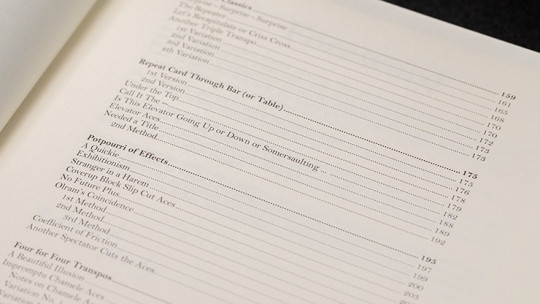 Classics 159
Surprise – Surprise 161
The Repeater 165
Let's Recapitulate or Criss Cross 168
Another Triple Transpo 170
1st Variation 170
2nd Variation 172
3rd Variation 173
4th Variation 173
Repeat Card Through Bar (or Table) 175
1st Version 175
2nd Version 176
Under the Top 178
Call It The – 179
Is This Elevator Going Up or Down or Somersaulting ... 182
Elevator Aces 188
Needed a Title 189
2nd Method 192
Potpourri of Effects 195
A Quickie 197
Exhibitionism 199
Stranger in a Harem 200
Coverup Block Slip Cut Aces 203
No Future Plus
Olram's Coincidence
1st Method
2nd Method
3rd Method
Coefficient of Friction
Another Spectator Cuts the Aces
Four for Four Transpos
A Beautiful Illusion
Impromptu Channele Aces
Notes on Channele Aces
Variation No.
Variation